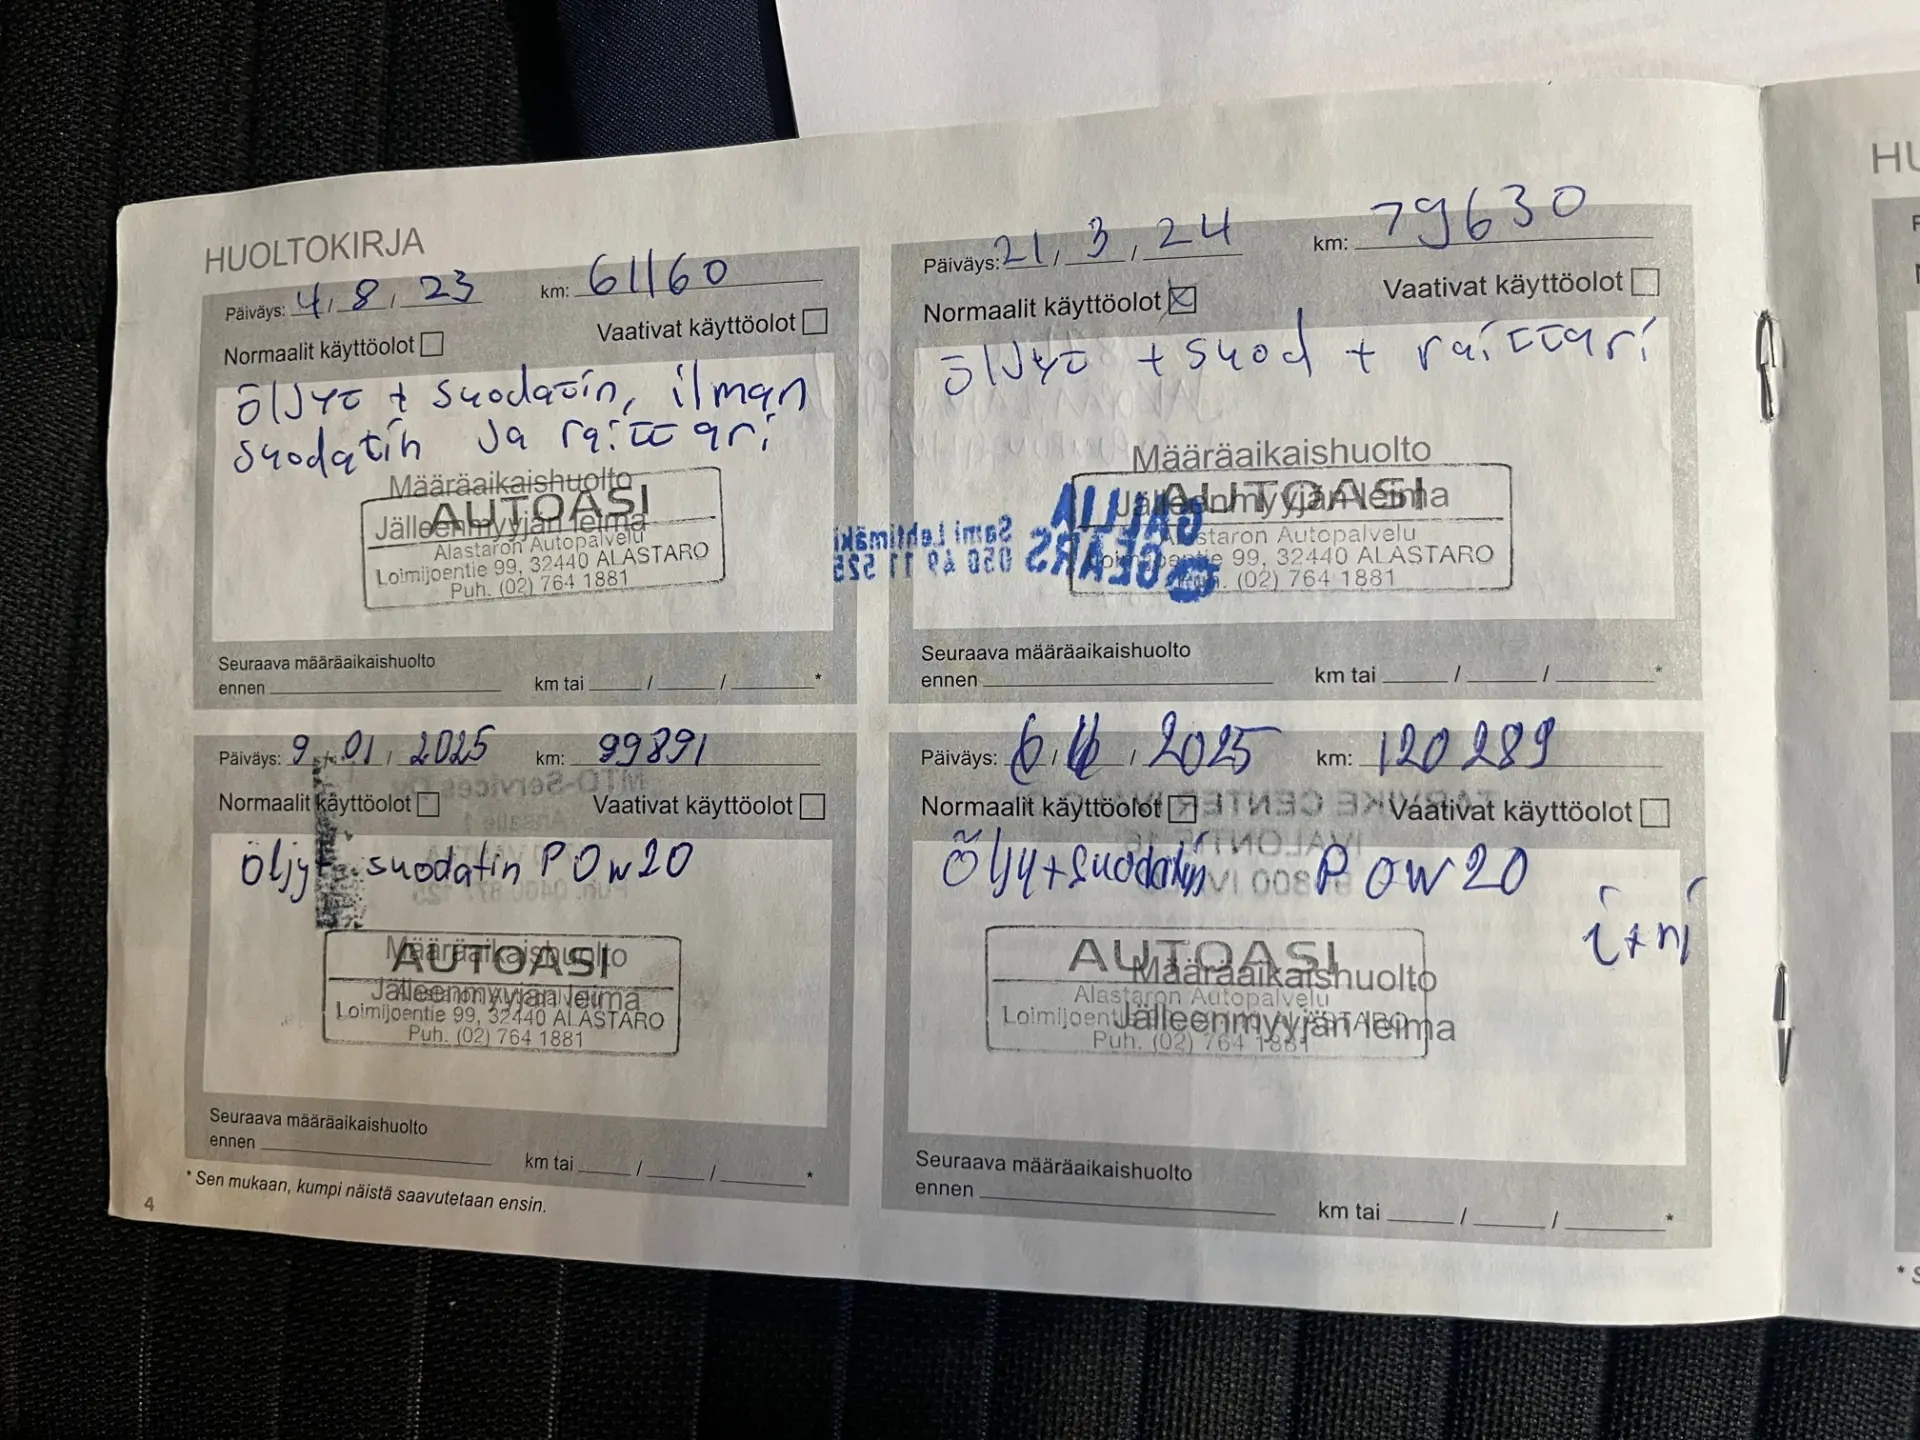 HUOLTOKIRJA
Päiväys: 4 / 8 / 23 km: 61160
Normaalit käyttöolot Vaativat käyttöolot
öljyt + suodatin, ilman
suodatin ja raittari
Määräaikaishuolto
AUTOASI
Jälleenmyyjän leima
Alastaron Autopalvelu
Loimijoentie 99, 32440 ALASTARO
Puh. (02) 764 1881
Seuraava määräaikaishuolto
ennen km tai / / *
Päiväys: 21 / 3 / 24 km: 79630
Normaalit käyttöolot Vaativat käyttöolot
öljyt + suod + raittari
Määräaikaishuolto
AUTOASI
Jälleenmyyjän leima
Alastaron Autopalvelu
Loimijoentie 99, 32440 ALASTARO
Puh. (02) 764 1881
GALLIA
GEARS
Sami Lehtimäki
050 49 11 525
Seuraava määräaikaishuolto
ennen km tai / / *
Päiväys: 9 / 01 / 2025 km: 99891
Normaalit käyttöolot Vaativat käyttöolot
Öljyt suodatin P 0w20
Määräaikaishuolto
AUTOASI
Jälleenmyyjän leima
Alastaron Autopalvelu
Loimijoentie 99, 32440 ALASTARO
Puh. (02) 764 1881
Seuraava määräaikaishuolto
ennen km tai / / *
Päiväys: 6 / / 2025 km: 120289
Normaalit käyttöolot Vaativat käyttöolot
Öljy + suodatin P 0W20
AUTOASI
Määräaikaishuolto
Alastaron Autopalvelu
Jälleenmyyjän leima
Puh. (02) 764 1881
Seuraava määräaikaishuolto
ennen km tai / / *
* Sen mukaan, kumpi näistä saavutetaan ensin.
4
HU